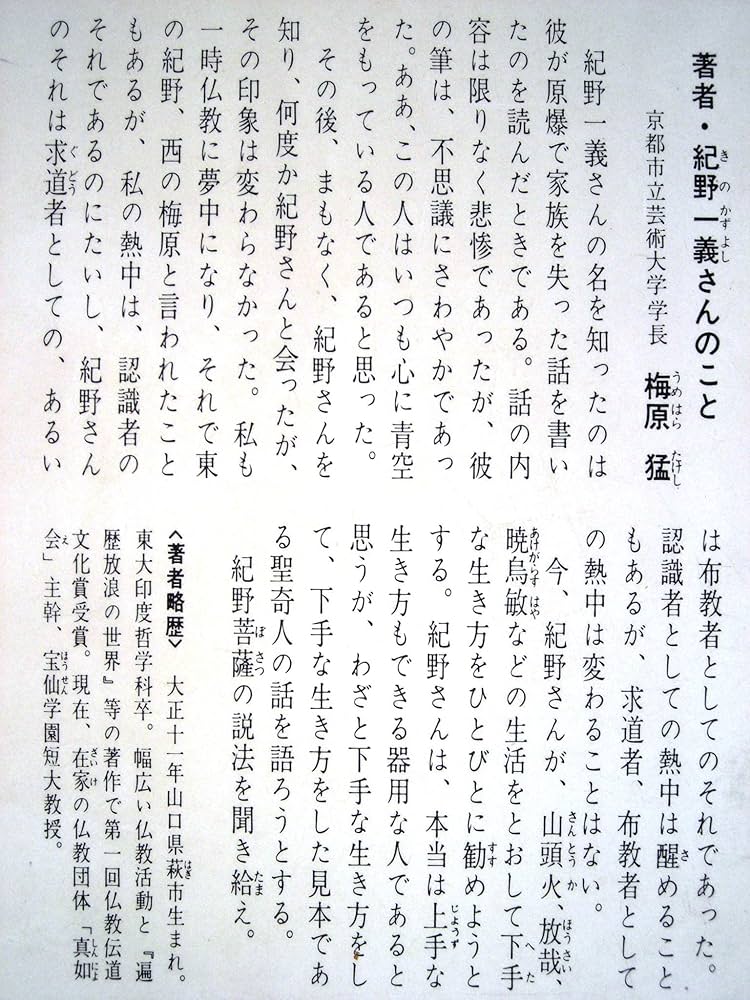 著者・紀野一義さんのこと
京都市立芸術大学学長　梅原　猛
紀野一義さんの名を知ったのは
彼が原爆で家族を失った話を書い
たのを読んだときである。話の内
容は限りなく悲惨であったが、彼
の筆は、不思議にさわやかであっ
た。ああ、この人はいつも心に青空
をもっている人であると思った。
その後、まもなく、紀野さんを
知り、何度か紀野さんと会ったが、
その印象は変わらなかった。私も
一時仏教に夢中になり、それで東
の紀野、西の梅原と言われたこと
もあるが、私の熱中は、認識者の
それであるのにたいし、紀野さん
のそれは求道者としての、あるい
は布教者としてのそれであった。
認識者としての熱中は醒めること
もあるが、求道者、布教者として
の熱中は変わることはない。
今、紀野さんが、山頭火、放哉、
暁烏敏などの生活をとおして下手
な生き方をひとびとに勧めようと
する。紀野さんは、本当は上手な
生き方もできる器用な人であると
思うが、わざと下手な生き方をし
て、下手な生き方をした見本であ
る聖奇人の話を語ろうとする。
紀野菩薩の説法を聞き給え。
〈著者略歴〉　大正十一年山口県萩市生まれ。
東大印度哲学科卒。幅広い仏教活動と『遍
歴放浪の世界』等の著作で第一回仏教伝道
文化賞受賞。現在、在家の仏教団体「真如
会」主幹、宝仙学園短大教授。